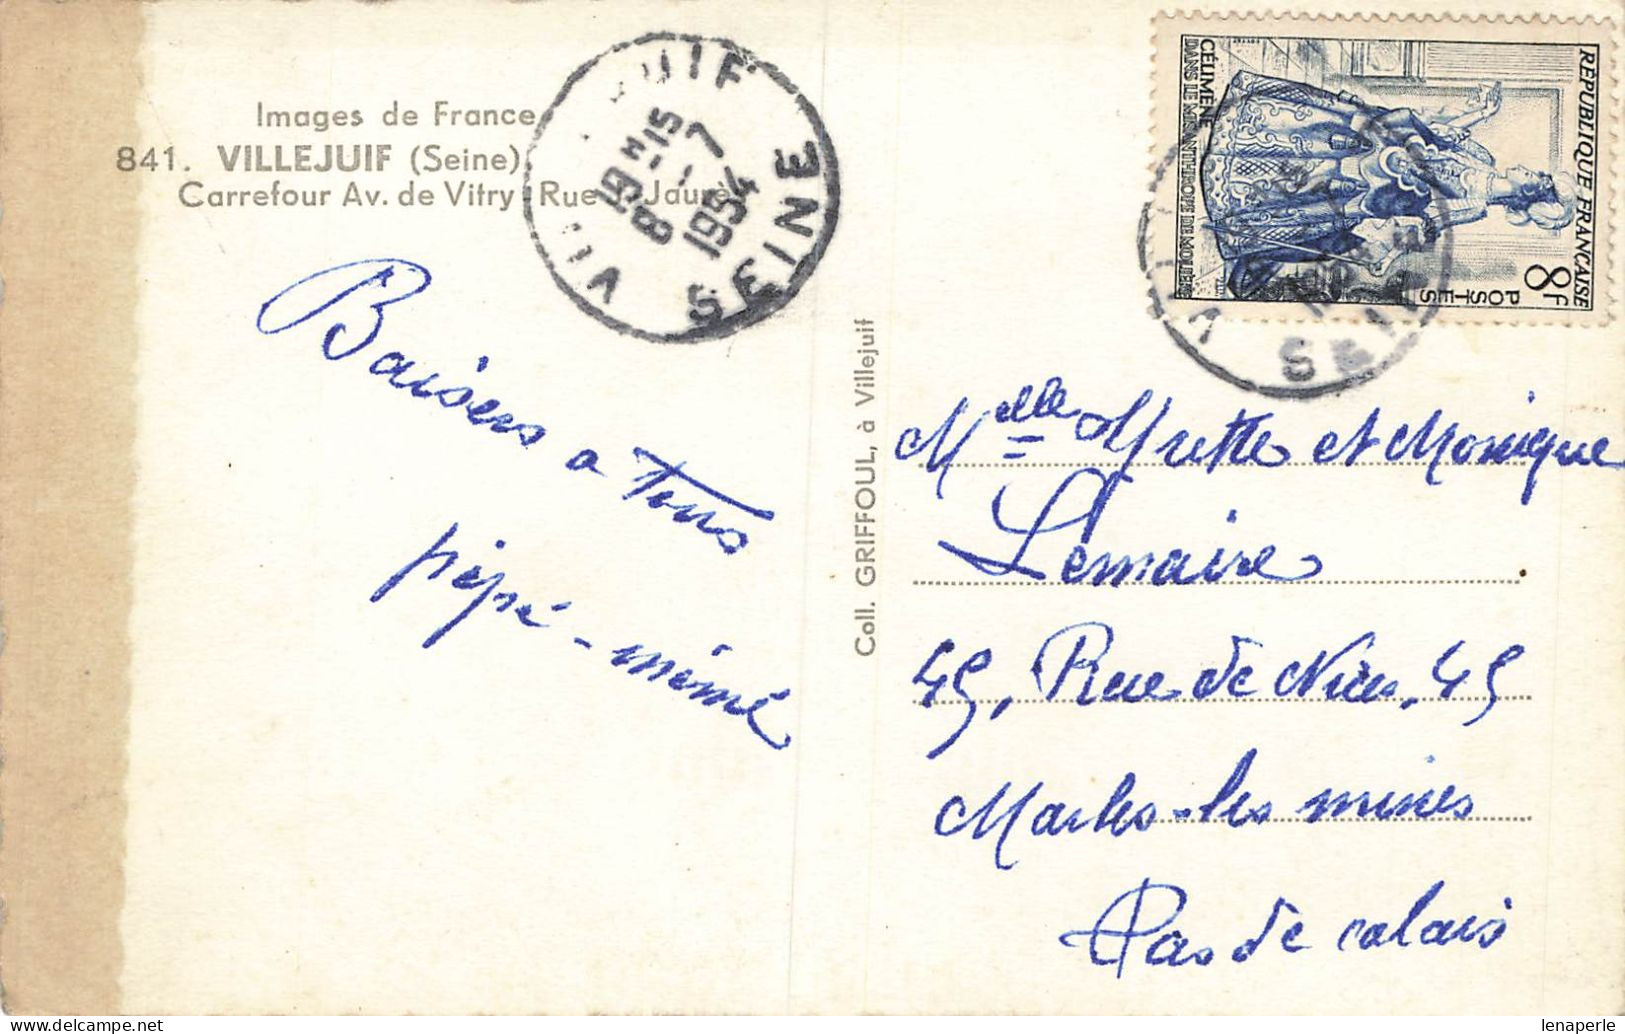 Images de France
841. VILLEJUIF (Seine)
Carrefour Av. de Vitry - Rue J. Jaurès
UIF
19 H 15
8 - 7
1954
SEINE
RÉPUBLIQUE FRANÇAISE
8F
POSTES
CÉLIMÈNE
DANS LE MISANTHROPE DE MOLIÈRE
SEINE
Baisers a tous
pépé-mémé
Coll. GRIFFOUL, à Villejuif
Melle et Monique
Lemaire
45, Rue de 45
Marles-les mines
Pas de calais
lenaperle